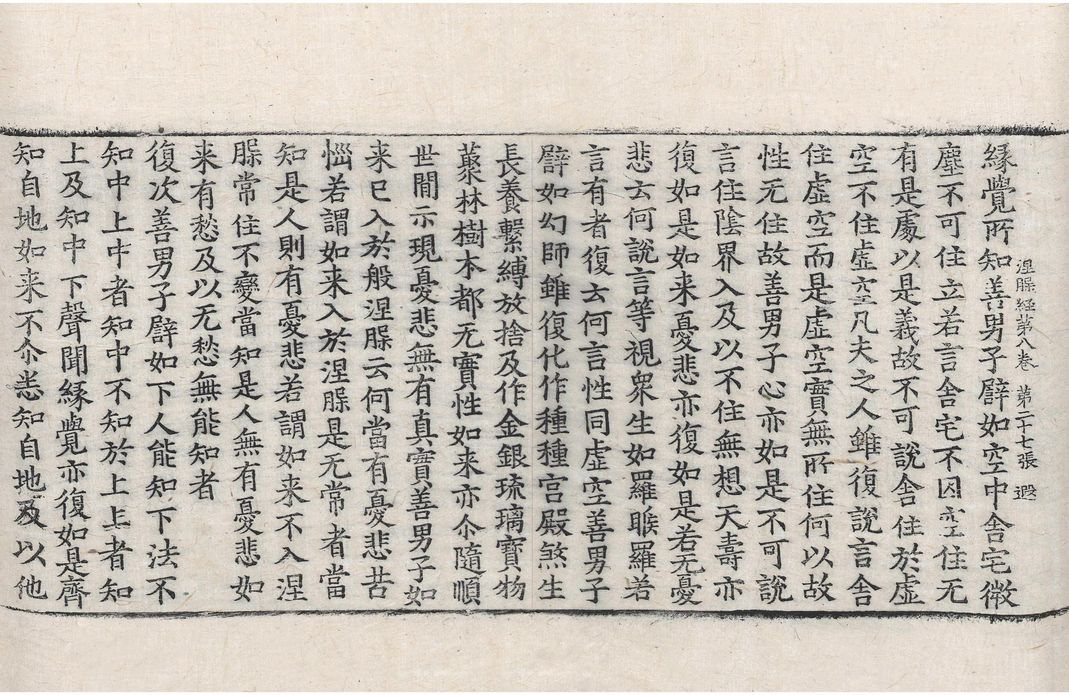 涅槃経第八卷 第二十七張 遐
縁覺所知善男子譬如空中舎宅微
塵不可住立若言舎宅不因空住无
有是處以是義故不可說舎住於虚
空不住虚空凡夫之人雖復說言舎
住虚空而是虚空實無所住何以故
性无住故善男子心亦如是不可說
言住陰界入及以不住無想天壽亦
復如是如来憂悲亦復如是若无憂
悲云何說言等視衆生如羅睺羅若
言有者復云何言性同虚空善男子
譬如幻師雖復化作種種宫殿煞生
長養繋縛放捨及作金銀琉璃寶物
藂林樹木都无實性如来亦尒隨順
世間示現憂悲無有真實善男子如
来已入於般涅槃云何當有憂悲苦
惱若謂如来入於涅槃是无常者當
知是人則有憂悲若謂如来不入涅
槃常住不變當知是人無有憂悲如
来有愁及以无愁無能知者
復次善男子譬如下人能知下法不
知中上中者知中不知於上上者知
上及知中下聲聞縁覺亦復如是齊
知自地如来不尒悉知自地及以他